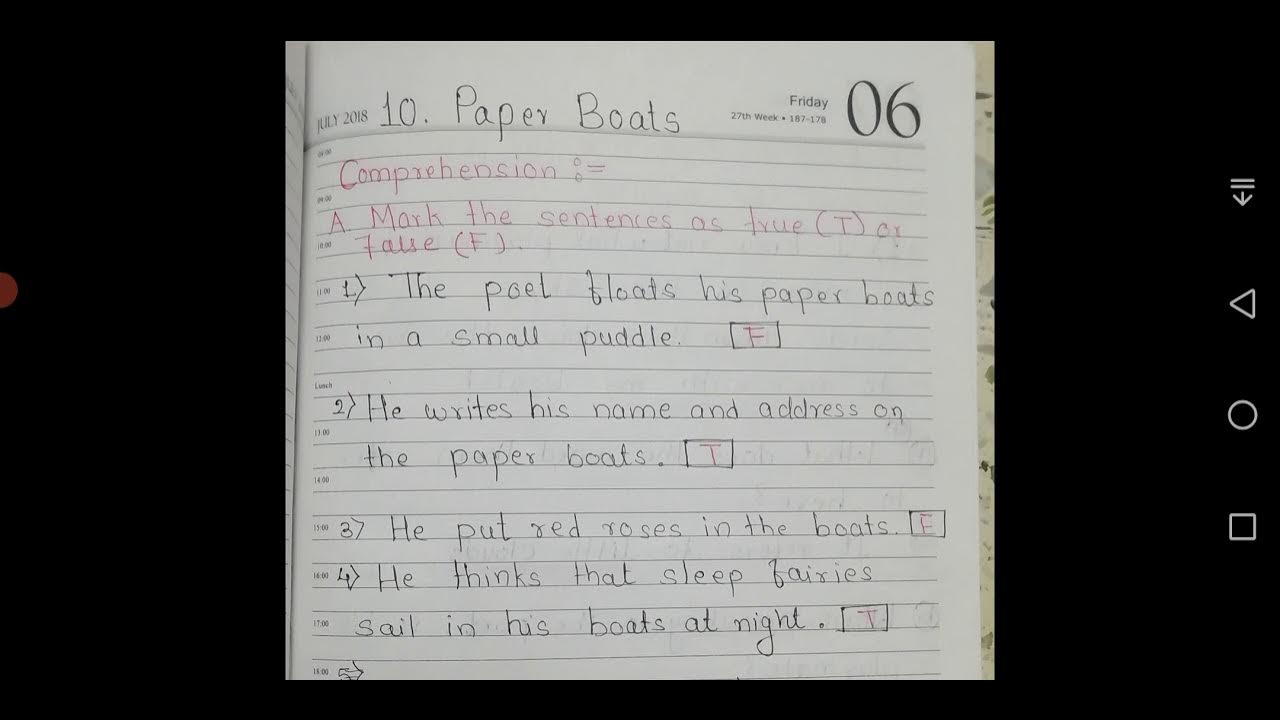 JULY 2018 10. Paper Boats Friday 06
27th Week • 187-178
09:00
Comprehension :=
09:00
A. Mark the sentences as true (T) or
10:00 False (F).
11:00 1) The poet floats his paper boats
12:00 in a small puddle. F
Lunch
2) He writes his name and address on
13:00
the paper boats. T
14:00
15:00 3) He put red roses in the boats. F
16:00 4) He thinks that sleep fairies
17:00 sail in his boats at night. T
18:00 5)